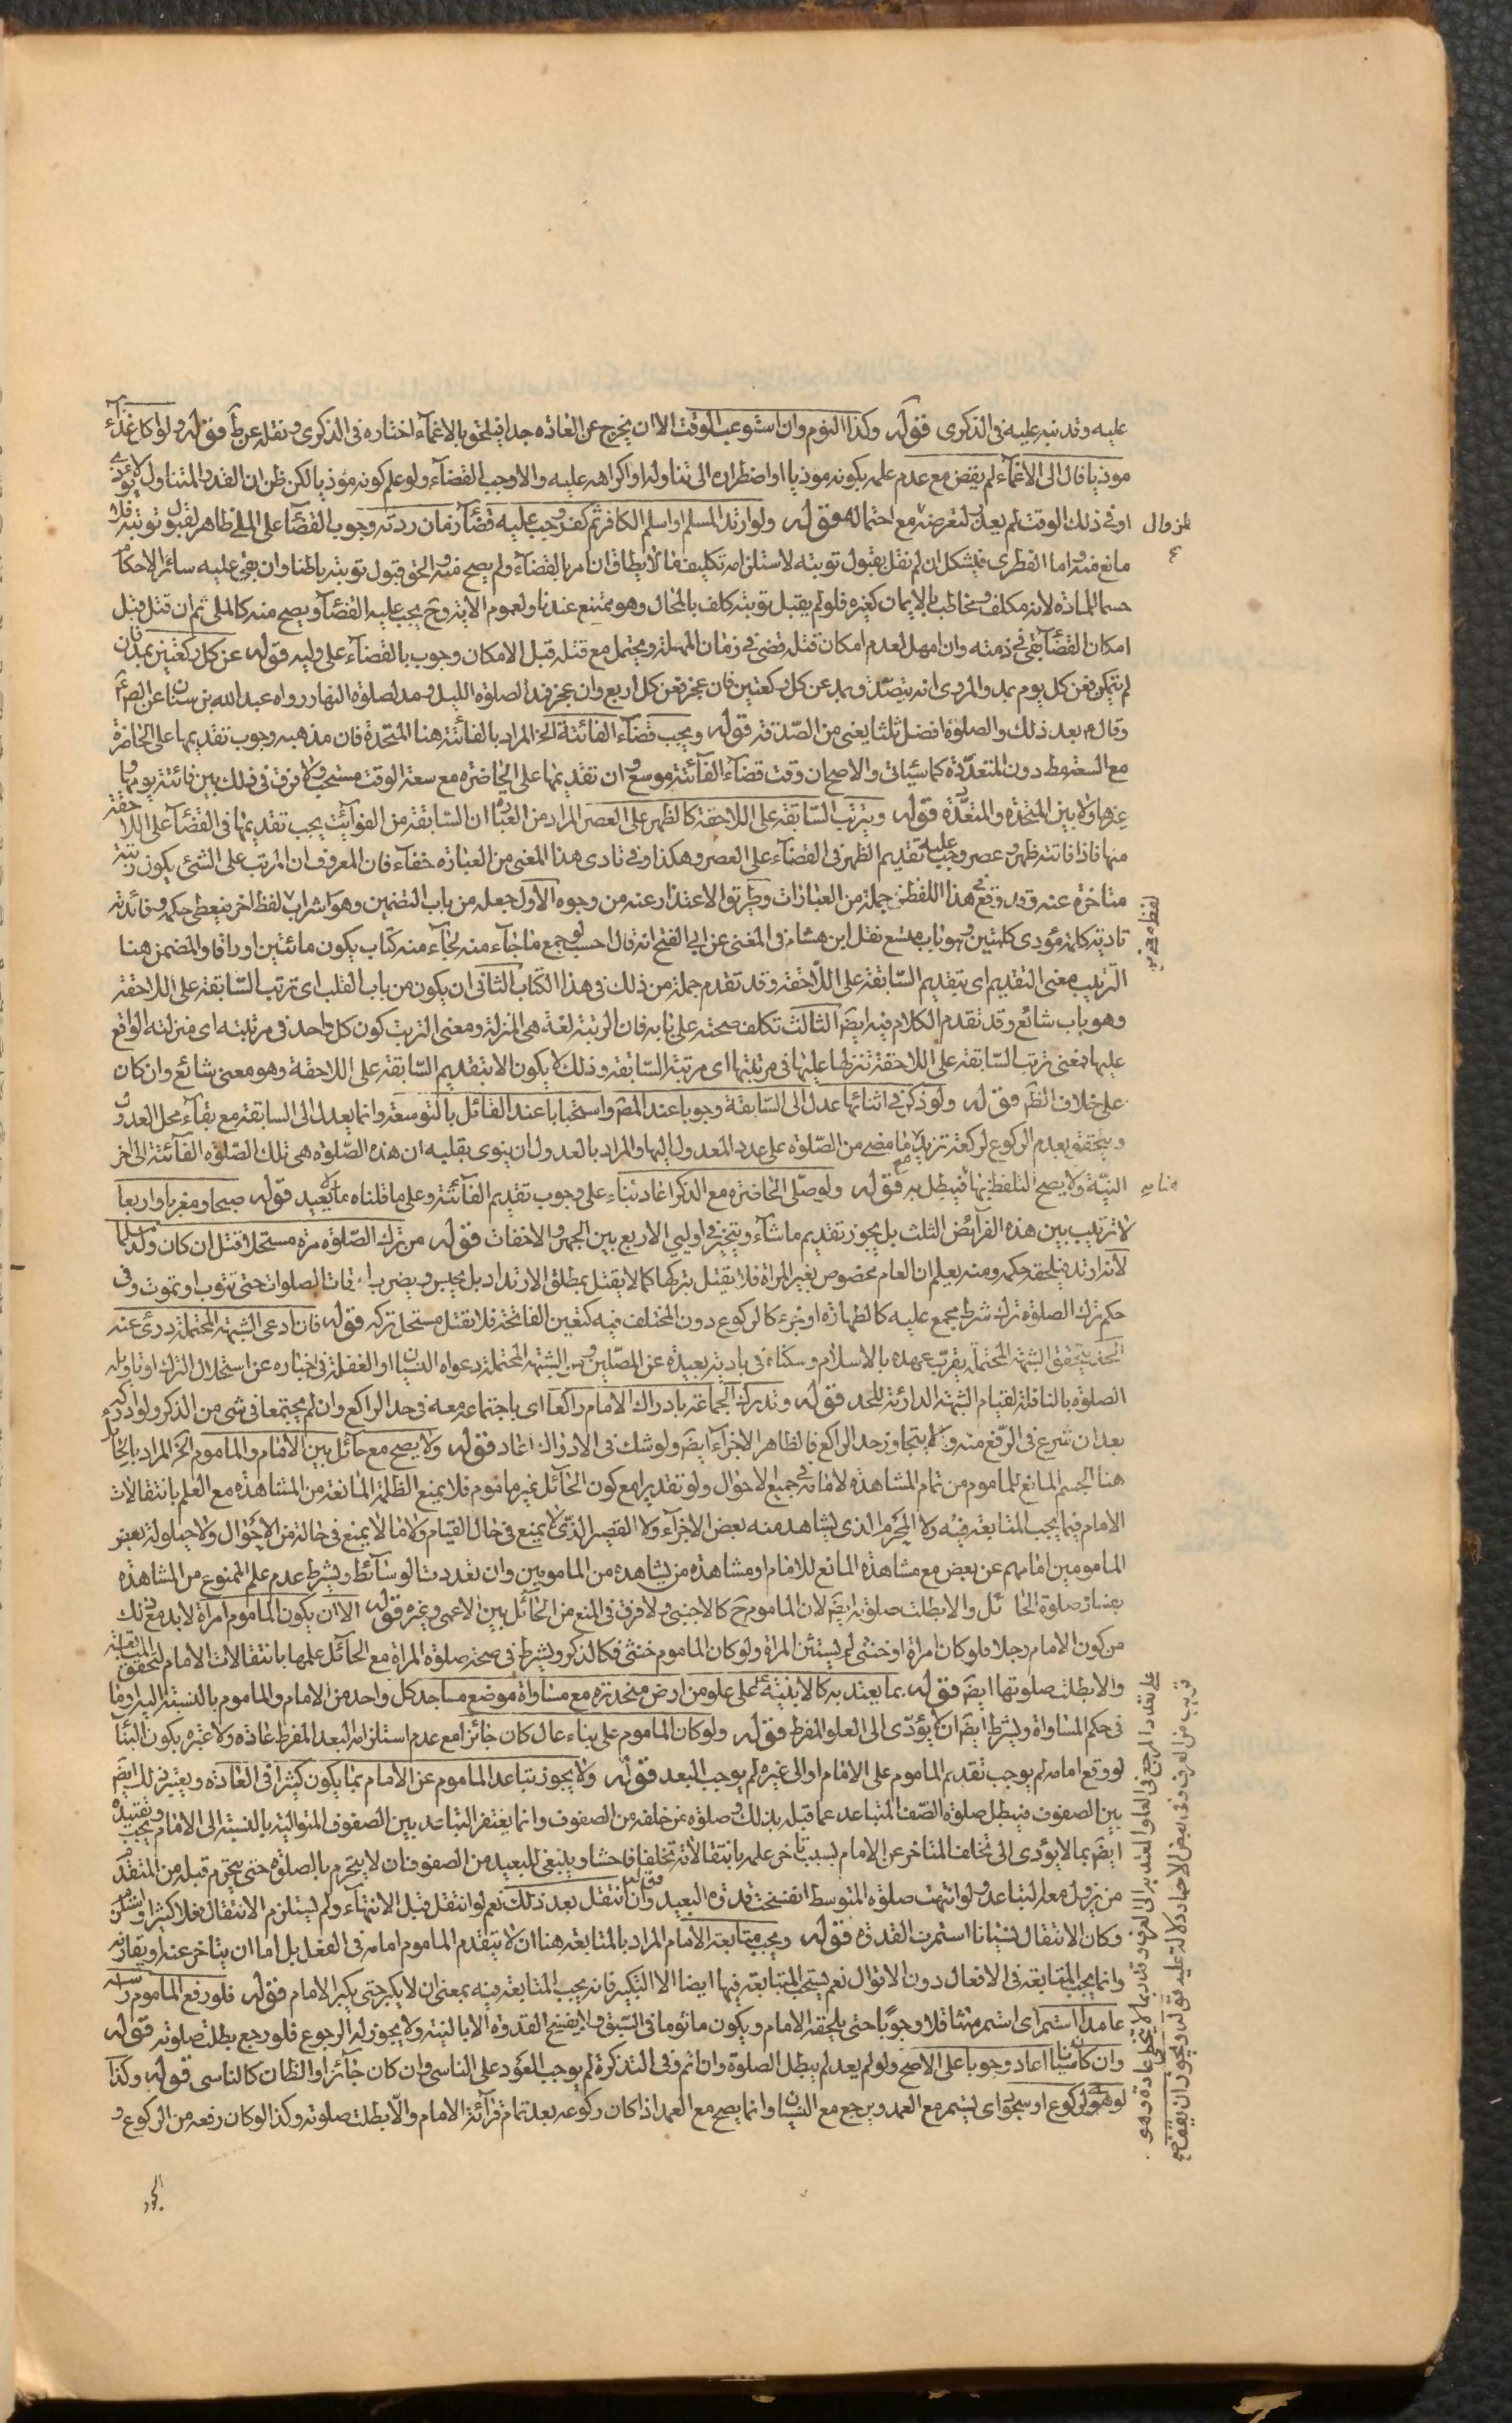 عليه وقد نبه عليه فى الذكرى قوله وكذا النوم وان استوعب الوقت الا ان يخرج عن العاده جدا فيلحق بالاغماء اختاره فى الذكرى ونقله عن ط قوله ولو اكل غذاء
موذيا فال الى الاغماء لم يقض مع عدم علمه بكونه موذيا او اضطراره الى تناوله او اكراهه عليه والا وجب القضآء ولو علم كونه موذيا لكن ظن ان القدر المتناول لا يؤذى
او فى ذلك الوقت لم يعذر لتعرضه مع احتماله قوله ولو ارتد المسلم او اسلم الكافر ثم كفر وجب عليه قضآء زمان ردته وجوب القضآء على الملى ظاهر لقبول توبته فلا
مانع منه واما الفطرى فيشكل ان لم نقل بقبول توبته لاستلزامه تكليف ما لا يطاق ان امر بالقضآء ولم يصح منه والحق قبول توبته باطنا وان بقى عليه سائر الاحكام
حسما للمادة لانه مكلف ومخاطب بالايمان كغيره فلو لم يقبل توبته كلف بالمحال وهو ممتنع عندنا ولعموم الاية وح يجب عليه القضآء ويصح منه كالملى ثم ان قتل قبل
امكان القضآء بقى فى ذمته وان امهل لعدم امكان قتله قضى فى زمان المهلة ويحتمل مع قتله قبل الامكان وجوب القضآء على وليه قوله عن كل ركعتين بمد فان
لم يتمكن فعن كل يوم بمد والمروى انه يتصدق بمد عن كل ركعتين فان عجز فعن كل اربع وان عجز فمد لصلوة الليل ومد لصلوة النهار رواه عبد الله بن سنان عن الص ع
وقال ع بعد ذلك والصلوة افضل ثلثا يعنى من الصدقة قوله ويجب قضآء الفائتة الخ المراد بالفائتة هنا المتحدة فان مذهبه وجوب تقديمها على الحاضرة
مع السعة فقط دون المتعددة كما سيأتى والاصح ان وقت قضآء الفآئتة موسع وان تقديمها على الحاضرة مع سعة الوقت مستحب ولا فرق فى ذلك بين فائتة يومها
وغيرها ولا بين المتحدة والمتعددة قوله ويترتب السابقة على اللاحقة كالظهر على العصر المراد من العبارة ان السابقة من الفوآئت يجب تقديمها فى القضآء على اللاحقة
منها فاذا فاتته ظهر وعصر وجب عليه تقديم الظهر فى القضآء على العصر وهكذا وفى تادى هذا المعنى من العبارة خفآء فان المعروف ان المرتب على الشئ يكون رتبته
متاخرة عنه وقد وقع هذا اللفظ فى جملة من العبارات وطريق الاعتذار عنه من وجوه الاول جعله من باب التضمين وهو اشراب لفظ اخر فيعطى حكمه وفائدته
تادية كلمة مؤدى كلمتين وهو باب متسع نقل ابن هشام فى المغنى عن ابى الفتح انه قال احسب لو جمع ما جآء منه لجآء منه كتاب يكون مائتين اوراقا والمضمن هنا
الترتيب معنى التقديم اى بتقديم السابقة على اللاحقة وقد تقدم جملة من ذلك فى هذا الكتاب الثانى ان يكون من باب القلب اى ترتب السابقة على اللاحقة
وهو باب شائع وقد تقدم الكلام فيه ايضا الثالث تكلف صحته على بابه فان الرتبة لغة هى المنزلة ومعنى الترتب كون كل واحد فى مرتبته اى منزلته الواقع
عليها فمعنى ترتب السابقة على اللاحقة تنزلها عليها فى مرتبتها اى مرتبة السابقة وذلك لا يكون الا بتقديم السابقة على اللاحقة وهو معنى شائع وان كان
على خلاف الظ قوله ولو ذكر فى اثنائها عدل الى السابقة وجوبا عند المص واستحبابا عند القائل بالتوسعة وانما يعدل الى السابقة مع بقآء محل العدول
ويتحقق بعدم الركوع لركعة تزيد ما مضى من الصلوة على عدد المعدول اليها والمراد بالعدول ان ينوى بقلبه ان هذه الصلوة هى تلك الصلوة الفآئتة الى اخر
النية ولا يصح التلفظ بها فيبطل به قوله ولو صلى الحاضرة مع الذكر اعاد بناء على وجوب تقديم الفآئتة وعلى ما قلناه لا يعيد قوله صبحا ومغربا واربعا
لا ترتيب بين هذه الفرآئض الثلث بل يجوز تقديم ما شآء ويتخير فى اوليى الاربع بين الجهر والاخفات قوله من ترك الصلوة مرة مستحلا قتل ان كان ولد مسلما
لانه ارتد فيلحقه حكمه ومنه يعلم ان العام مخصوص بغير المراة فلا يقتل بتركها كما لا يقتل بمطلق الارتداد بل يحبس ويضرب اوقات الصلوات حتى تتوب او تموت وفى
حكم ترك الصلوة ترك شرط مجمع عليه كالطهارة او جزء كالركوع دون المختلف فيه كتعين الفاتحة فلا يقتل مستحل تركه قوله فان ادعى الشبهة المحتملة درئ عنه
الحد يتحقق الشبهة المحتملة بقرب عهده بالاسلام وسكناه فى بادية بعيدة عن المصلين ومن الشبهة المحتملة دعواه النسيان او الغفلة فى اخباره عن استحلال الترك او تاويله
الصلوة بالنافلة لقيام الشبهة الدارئة للحد قوله وتدرك الجماعة بادراك الامام راكعا اى باجتماعه معه فى حد الراكع وان لم يجتمعا فى شئ من الذكر ولو ادركه
بعد ان شرع فى الرفع منه ولما يتجاوز حد الراكع فالظاهر الاجزآء ايضا ولو شك فى الادراك اعاد قوله ولا يصح مع حآئل بين الامام والماموم الخ المراد بالحآئل
هنا الجسم المانع للماموم من تمام المشاهدة لامامه فى جميع الاحوال ولو تقديرا مع كون الحآئل غير ماموم فلا يمنع الظلمة المانعة من المشاهدة مع العلم بانتقالات
الامام فيما يجب المتابعة فيه ولا المخرم الذى يشاهد منه بعض الاجزآء ولا القصير الذى لا يمنع فى حال القيام ولا ما لا يمنع فى حالة من الاحوال ولا حيلولة بعض
المامومين امامهم عن بعض مع مشاهدة المانع للامام او مشاهدة من يشاهده من المامومين وان تعددت الوسآئط ويشرط عدم علم الممنوع من المشاهدة
بفساد صلوة الحائل والا بطلت صلوته ايضا لان الماموم ح كالاجنبى ولا فرق فى المنع من الحآئل بين الاعمى وغيره قوله الا ان يكون الماموم امراة لابد مع ذلك
من كون الامام رجلا فلو كان امراة او خنثى لم يستثن المراة ولو كان الماموم خنثى فكالذكر ويشرط فى صحة صلوة المراة مع الحآئل علمها بانتقالات الامام لتحقق المتابعة
والا بطلت صلوتها ايضا قوله بما يعتد به كالابنية لا على علو من ارض منحدرة مع مساواة موضع مساجد كل واحد من الامام والماموم بالنسبة اليه او ما
فى حكم المساواة ويشرط ايضا ان لا يؤدى الى العلو المفرط قوله ولو كان الماموم على بناء عال كان جائزا مع عدم استلزامه البعد المفرط عادة ولا عبرة بكون البناء
لو وقع امامه لم يوجب تقديم الماموم على الامام او الى غيره لم يوجب البعد قوله ولا يجوز تباعد الماموم عن الامام بما يكون كثيرا فى العادة ويعتبر ذلك ايضا
بين الصفوف فيبطل صلوة الصف المتباعد عما قبله بذلك وصلوة من خلفه من الصفوف وانما يغتفر التباعد بين الصفوف المتوالية بالنسبة الى الامام ويجب تقييده
ايضا بما لا يؤدى الى تخلف المتاخر عن الامام بسبب تاخر علمه بانتقالاته تخلفا فاحشا وينبغى للبعيد من الصفوف ان لا يتحرم بالصلوة حتى يتحرم قبله من المتقدم
من يزول معه التباعد ولو انتهت صلوة المتوسط انفسخت قدوة البعيد وان انتقل بعد ذلك نعم لو انتقل قبل الانتهآء ولم يستلزم الانتقال فعلا كثيرا
وكان الانتقال نسيانا استمرت القدوة قوله ويجب متابعة الامام المراد بالمتابعة هنا ان لا يتقدم الماموم امامه فى الفعل بل اما ان يتاخر عنه او يقارنه
وانما يجب المتابعة فى الافعال دون الاقوال نعم يستحب المتابعة فيها ايضا الا التكبير فانه يجب المتابعة فيه بمعنى ان لا يكبر حتى يكبر الامام قوله فلو رفع الماموم راسه
عامدا استمر اى استمر متثاقلا وجوبا حتى يلحقه الامام ويكون ماثوما فى السبق ولا ينفسخ القدوة الا بالنية ولا يجوز له الرجوع فلو رجع بطلت صلوته قوله
وان كان ناسيا اعاد وجوبا على الاصح ولو لم يعد لم يبطل الصلوة وان اثم وفى التذكرة لم يوجب العود على الناسى وان كان جآئزا والظان كالناسى قوله وكذا
لو هوى لركوع او سجود اى يستمر مع العمد ويرجع مع النسيان وانما يصح مع العمد اذا كان ركوعه بعد تمام قرآئة الامام والا بطلت صلوته وكذا لو كان رفعه من الركوع و